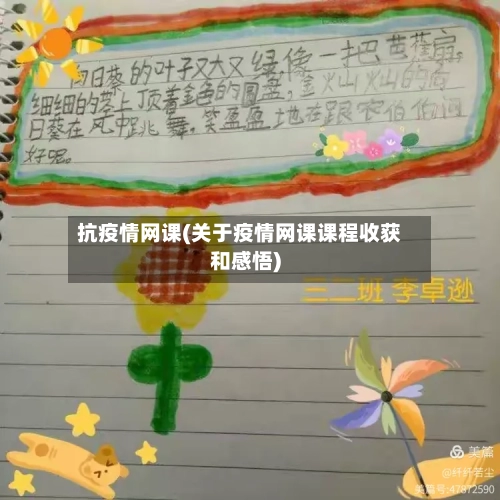 向日葵的叶子又大又绿像一把芭蕉扇。
细细的茎上顶着金色的圆盘,金灿灿的向
日葵在风中跳舞,笑盈盈地在跟农伯伯问
好呢。
抗疫情网课(关于疫情网课课程收获
和感悟)
三二班 李卓逊
美篇
@纤纤若尘
美篇号:47872590